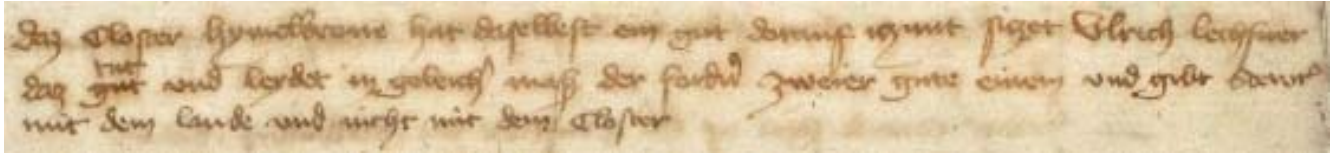 daz Closter hymelkrone hat daselbest ein gut dorauf iczunt siczet Ulrich lechsner
daz gut tut und leydet in geleich mass der fordern zweier gute einem und gibt stewr
mit dem lande und nicht mit dem Closter